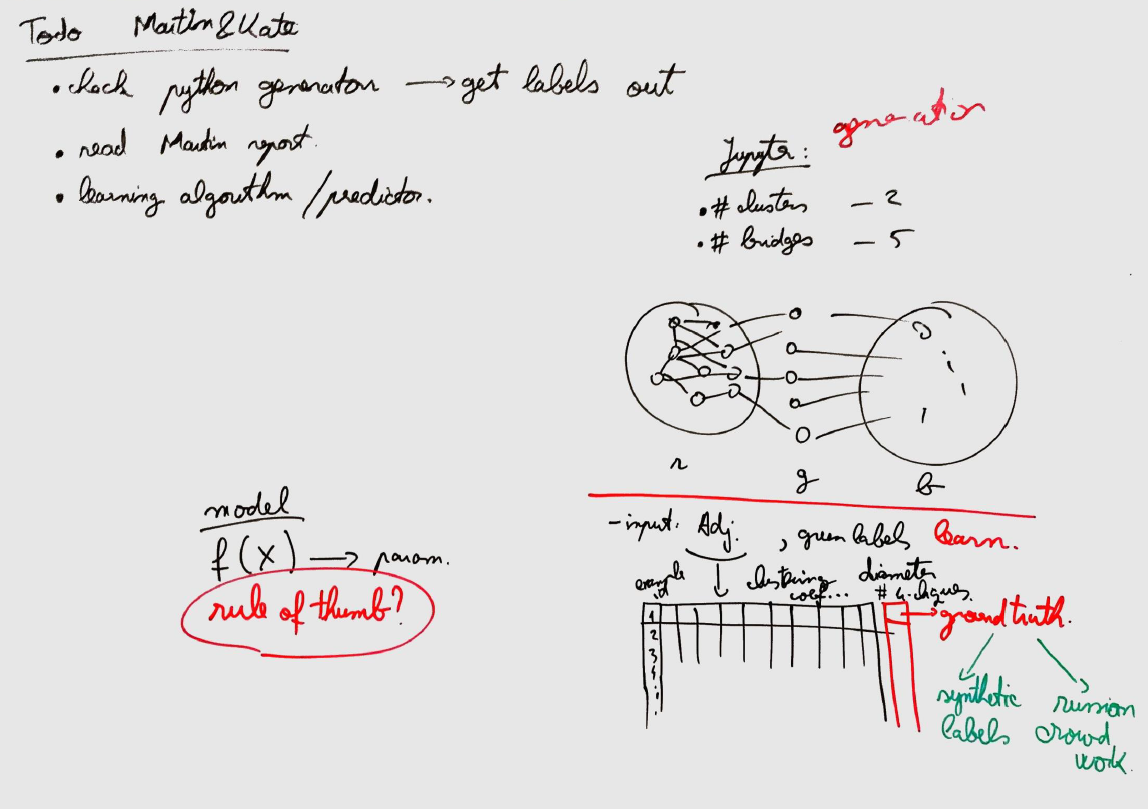 Todo Martin & Kate
• check python generator → get labels out
• read Martin report.
• learning algorithm / predictor.
generation
Jupyter:
• # clusters – 2
• # bridges – 5
r g b
model
f(x) → param.
rule of thumb?
- input: Adj. , green labels learn.
example id
clustering coef...
diameter
# 4-cliques.
1
2
3
4
→ ground truth.
synthetic labels
russian crowd work.